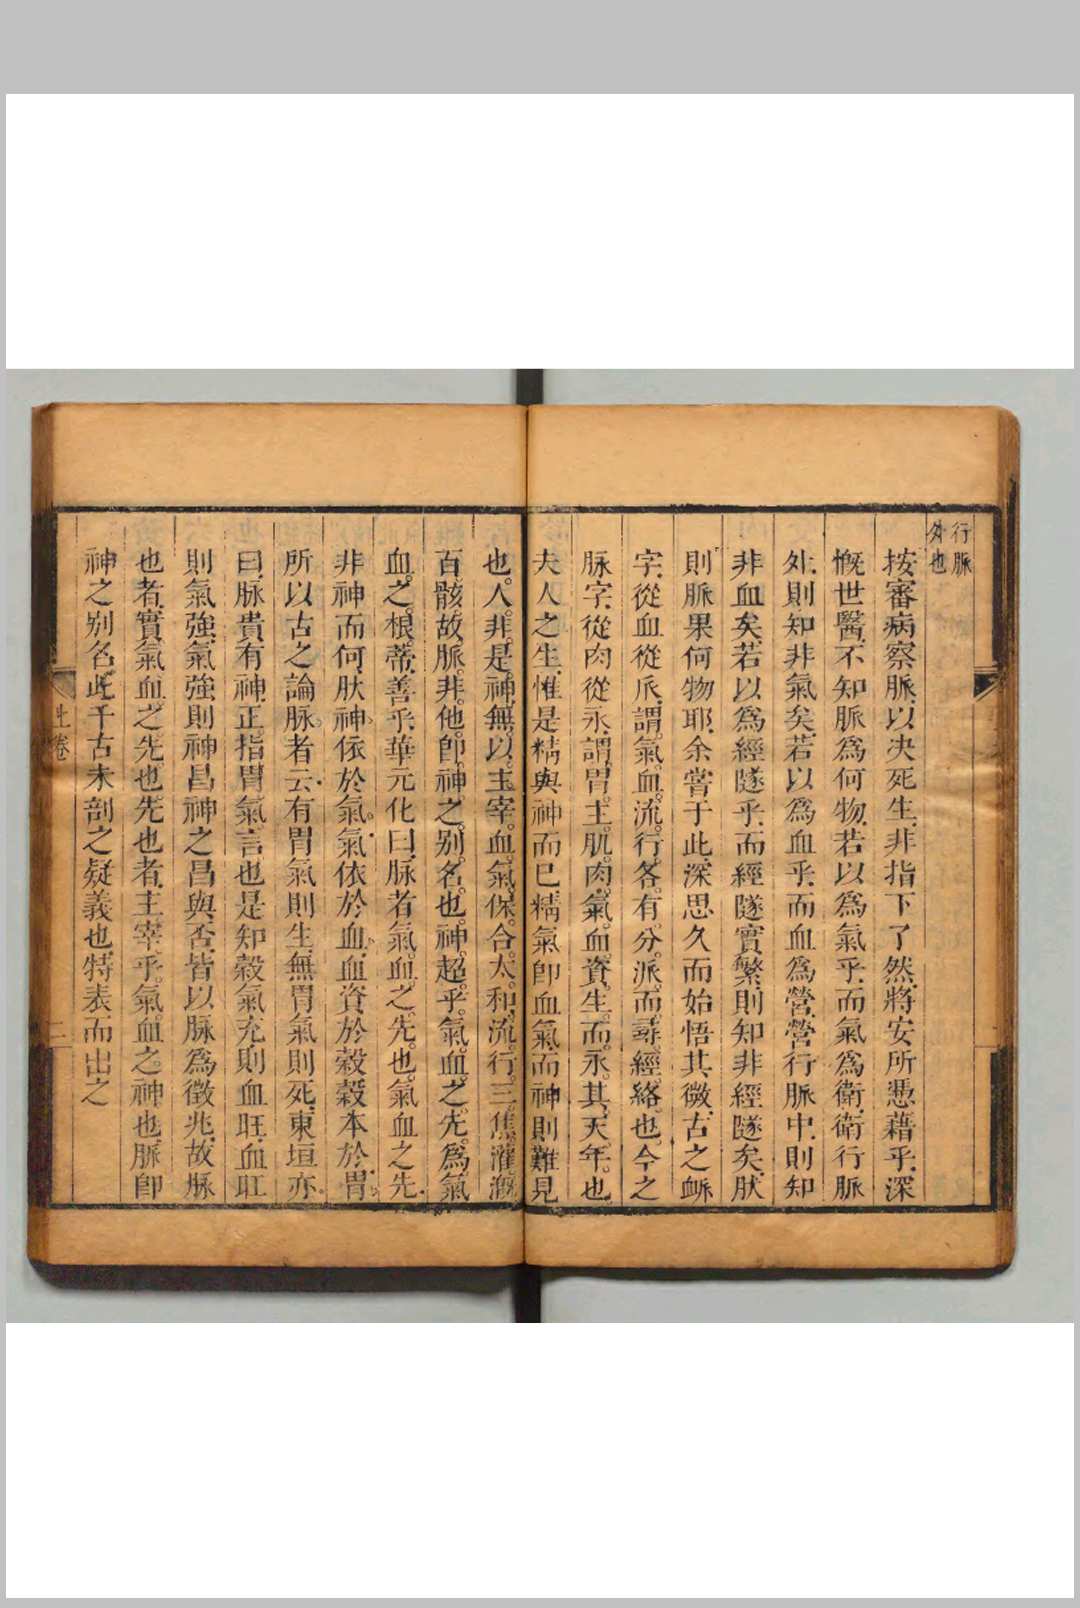 行脈
外也
按審病察脈以决死生非指下了然將安所憑藉乎深
慨世醫不知脈爲何物若以爲氣乎而氣爲衛衛行脈
外則知非氣矣若以爲血乎而血爲營營行脈中則知
非血矣若以爲經隧乎而經隧實繁則知非經隧矣肰
則脈果何物耶余嘗于此深思久而始悟其微古之衇
字從血從𠂢謂氣血流行各有分派而尋經絡也今之
脉字從肉從永謂胃主肌肉氣血資生而永其天年也
夫人之生惟是精與神而已精氣卽血氣而神則難見
也人非是神無以主宰血氣保合太和流行三焦灌漑
百骸故脈非他卽神之别名也神超乎氣血之先爲氣
血之根蒂善乎華元化曰脉者氣血之先也氣血之先
非神而何肰神依於氣氣依於血血資於穀穀本於胃
所以古之論脉者云有胃氣則生無胃氣則死東垣亦
曰脉貴有神正指胃氣言也是知穀氣充則血旺血旺
則氣強氣強則神昌神之昌與否皆以脉爲徵兆故脉
也者實氣血之先也先也者主宰乎氣血之神也脈卽
神之别名此千古未剖之疑義也特表而出之
上卷
二